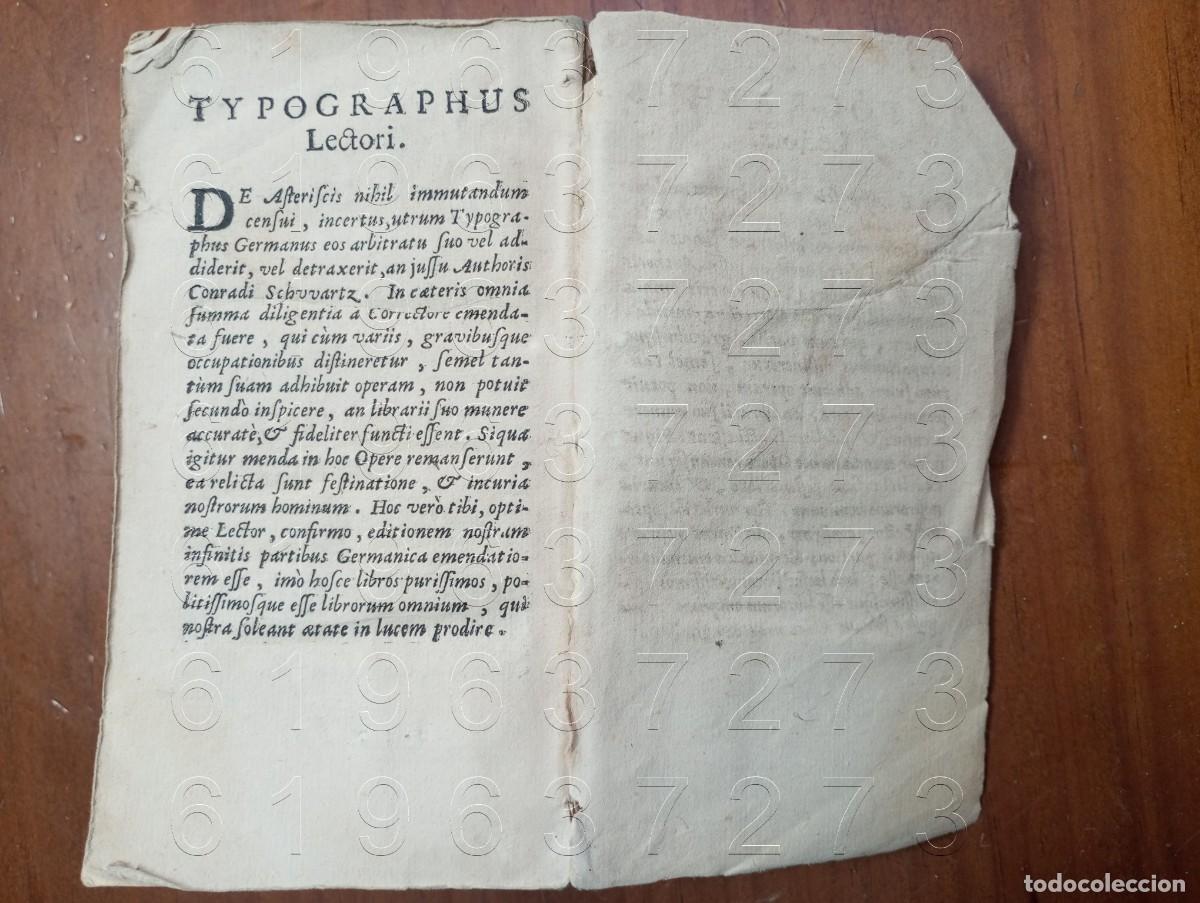 TYPOGRAPHUS
Lectori.
DE Asteriſcis nihil immutandum
cenſui, incertus, utrum Typogra-
phus Germanus eos arbitratu ſuo vel ad-
diderit, vel detraxerit, an juſſu Authoris
Conradi Schvvartz. In cæteris omnia
ſumma diligentia à Correctore emenda-
ta fuere, qui cùm variis, gravibuſque
occupationibus diſtineretur, ſemel tan-
tùm ſuam adhibuit operam, non potuit
ſecundò inſpicere, an librarii ſuo munere
accuratè, & fideliter functi eſſent. Siqua
igitur menda in hoc Opere remanſerunt,
ea relicta ſunt feſtinatione, & incuria
noſtrorum hominum. Hoc verò tibi, opti-
me Lector, confirmo, editionem noſtram
infinitis partibus Germanica emendatio-
rem eſſe, imò hoſce libros puriſſimos, po-
litiſſimoſque eſſe librorum omnium, qui
noſtra ſoleant ætate in lucem prodire.
619637273
619637273
619637273
619637273
619637273
619637273
619637273
todocoleccion